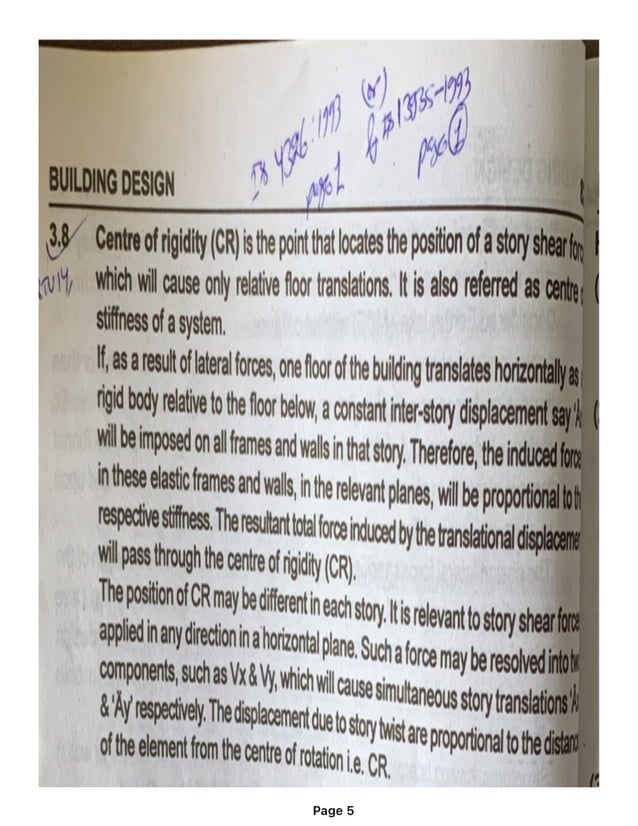 IS 4326:1993 (or)
& IS 13935-1993
page 1
page 1
BUILDING DESIGN
3.8 Centre of rigidity (CR) is the point that locates the position of a story shear for
which will cause only relative floor translations. It is also referred as centre
stiffness of a system.
If, as a result of lateral forces, one floor of the building translates horizontally as
rigid body relative to the floor below, a constant inter-story displacement say
will be imposed on all frames and walls in that story. Therefore, the induced force
in these elastic frames and walls, in the relevant planes, will be proportional to th
respective stiffness. The resultant total force induced by the translational displaceme
will pass through the centre of rigidity (CR).
The position of CR may be different in each story. It is relevant to story shear force
applied in any direction in a horizontal plane. Such a force may be resolved into tw
components, such as Vx & Vy, which will cause simultaneous story translations
& 'Äy' respectively. The displacement due to story twist are proportional to the distanc
of the element from the centre of rotation i.e. CR.
Page 5